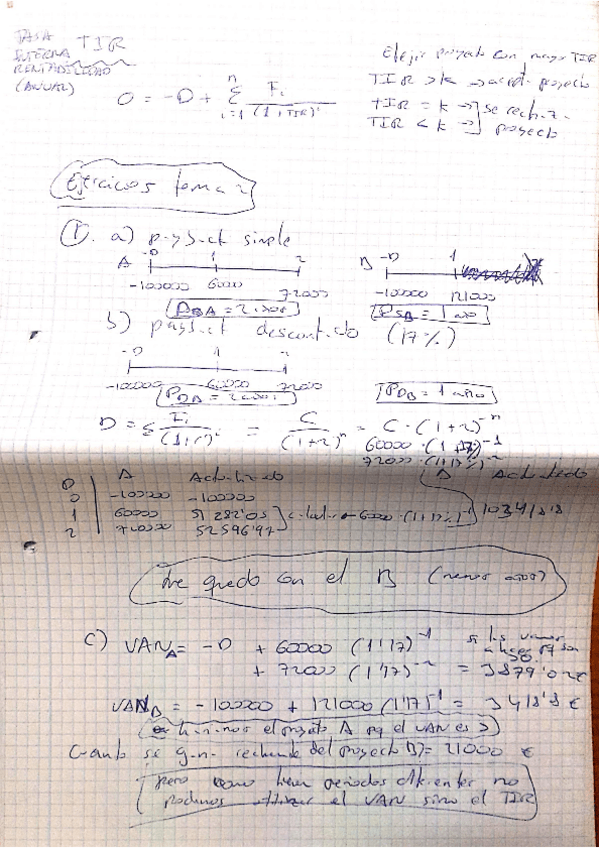 TASA TIR
INTERNA
RENTABILIDAD
(ANUAL)
0 = -D + Σ Fi / (1+TIR)^i
n
i=1
Elejir proyecto con mayor TIR
TIR > k → acept. proyecto
TIR = k → se rechaza
TIR < k → proyecto
Ejercicios tema 2
1. a) payback simple
A -D 1 2
-100000 60000 72000
B -D 1
-100000 121000
= 1 año
b) payback descontado (17%)
-D 1 2
-100000 60000 72000
PDB = 1 año
D = Σ Fi / (1+r)^i = C / (1+r)^n = C · (1+r)^-n
60000 · (1,17)^-1
72000 · (1'17)^-2
A Actualizado
0 -100000 -100000
1 60000 51282'05
2 72000 52596'97
Me quedo con el B (menor )
c) VAN A = -D + 60000 (1'17)^-1
+ 72000 (1'17)^-2 = 3879'02 €
VAN B = -100000 + 121000 (1'17)^-1 = 3418'8 €
el proyecto A pq el VAN es >
Cuanto se gana del proyecto B) = 21000 €
pero como tienen periodos diferentes no
podemos utilizar el VAN sino el TIR